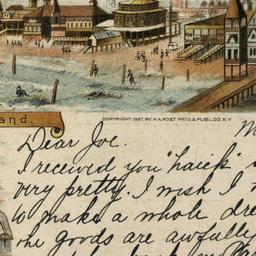 and.
COPYRIGHT 1897, BY H.A.ROST PRTG & PUBL.CO. N.Y
Dear Joe.
I received you "haick"
very pretty. I wish I
to make a whole dre
the goods are awfully